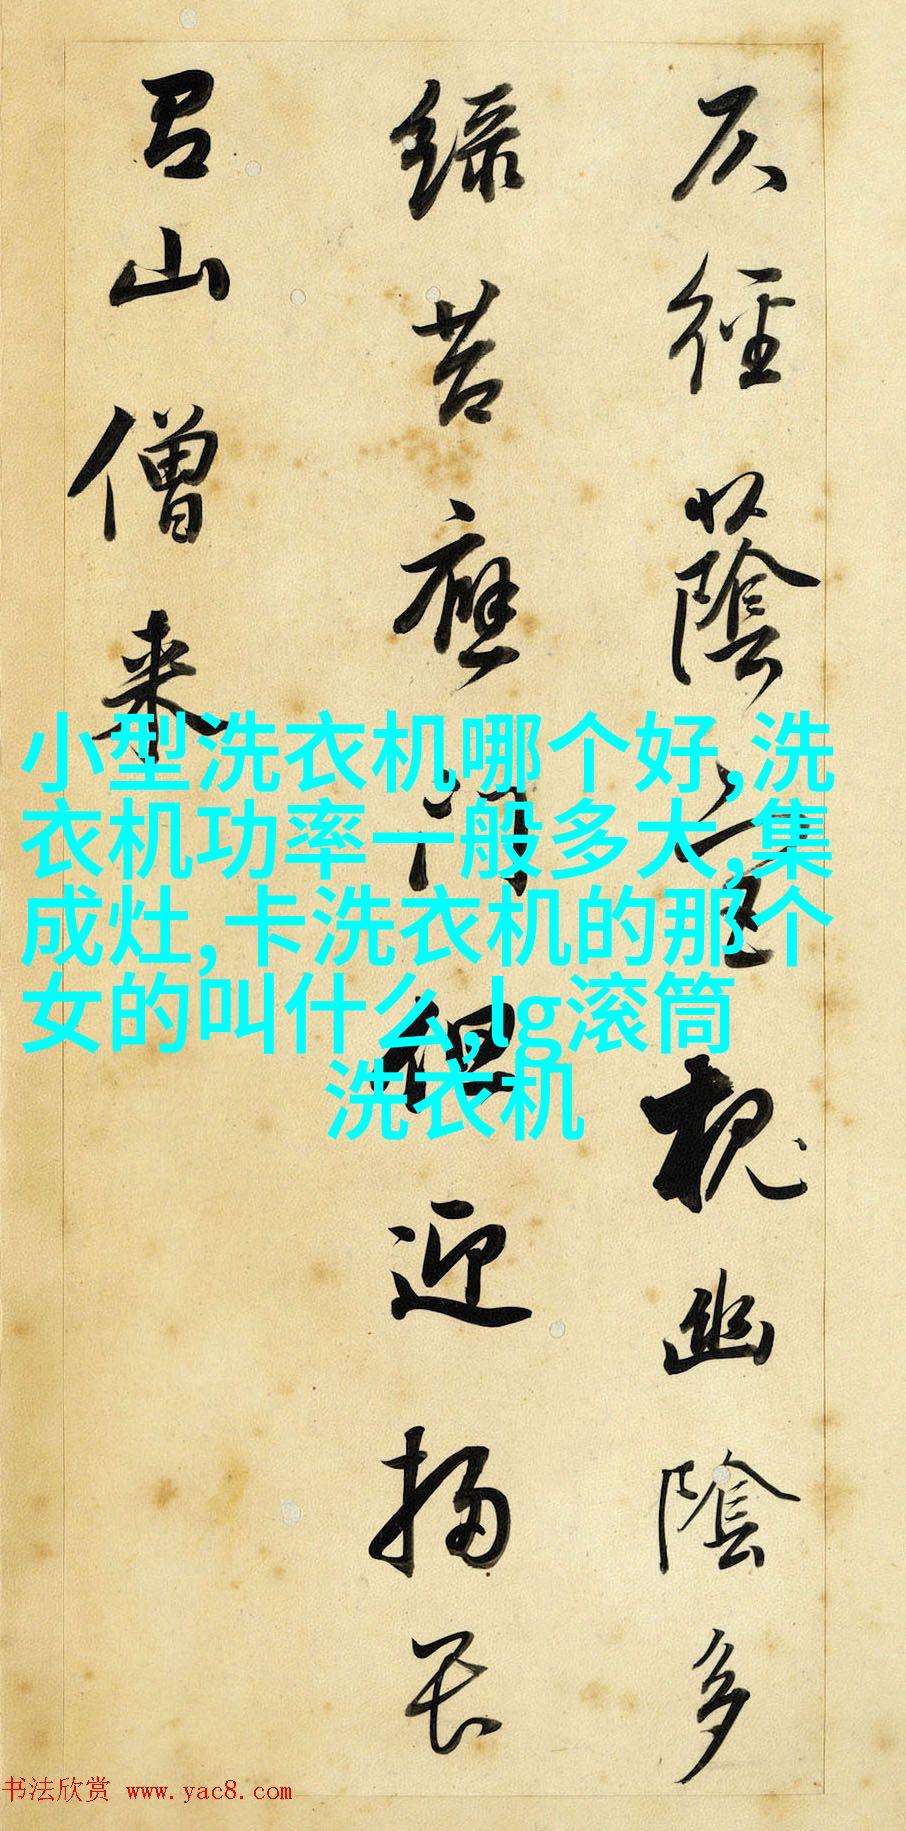 仄徑蔭宮槐幽陰多
綠苔應門但迎掃畏
有山僧來
小型洗衣机哪个好,洗
衣机功率一般多大,集
成灶,卡洗衣机的那个
女的叫什么,lg滚筒
洗衣机
书法欣赏 www.yac8.com